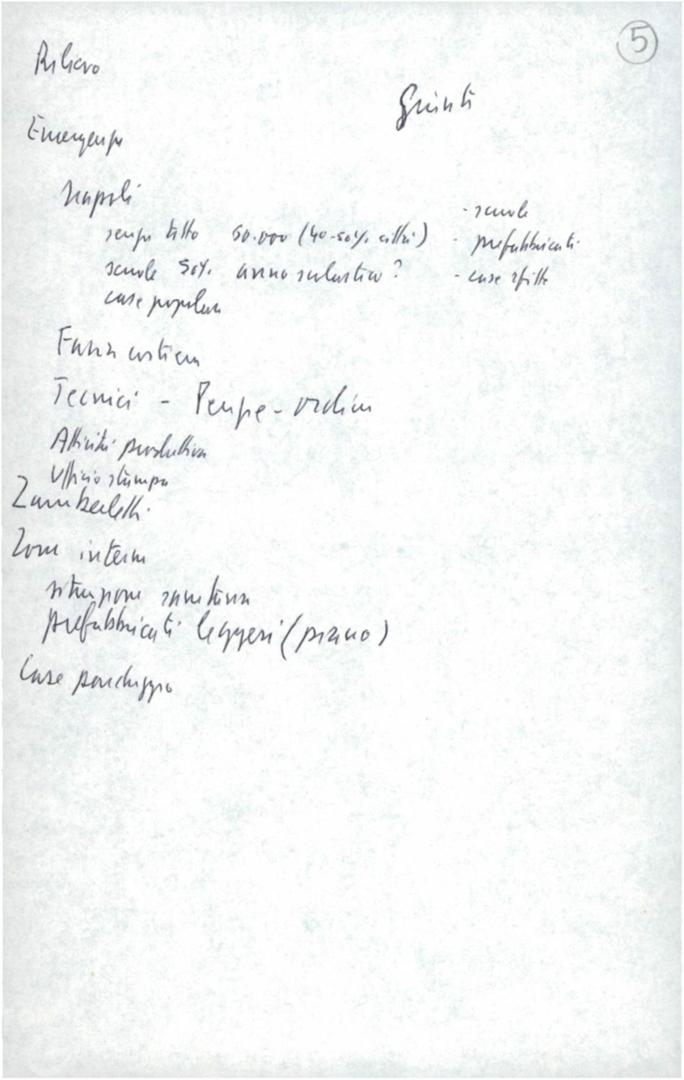 5
Rilievo
Giunti
Emergenza
Napoli
senza tetto 50.000 (40-50% città)
- scuole
- prefabbricati
- case sfitte
scuole 50% anno scolastico?
case popolari
Fascia costiera
Tecnici - - ordini
Attività produttiva
Ufficio stampa
Zamberletti
Zone interne
situazione sanitaria
prefabbricati leggeri (piano)
Case parcheggio